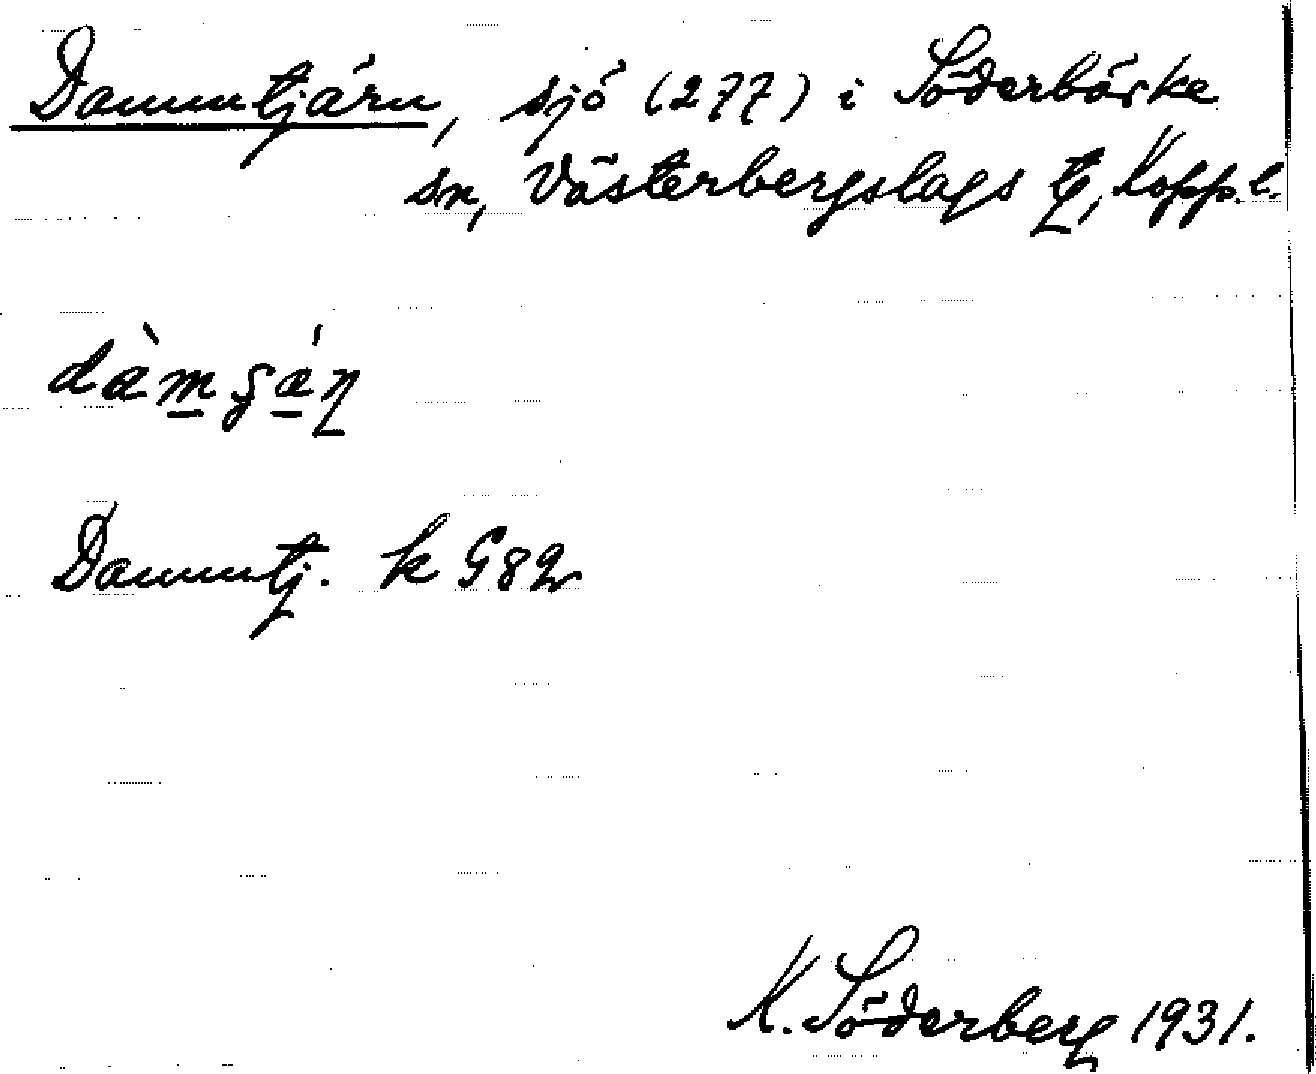 Dammtjärn, sjö (277) i Söderbärke
sn, Västerbergslags tg, Kopp. l.
Dammtj. k G82
K. Söderberg 1931.